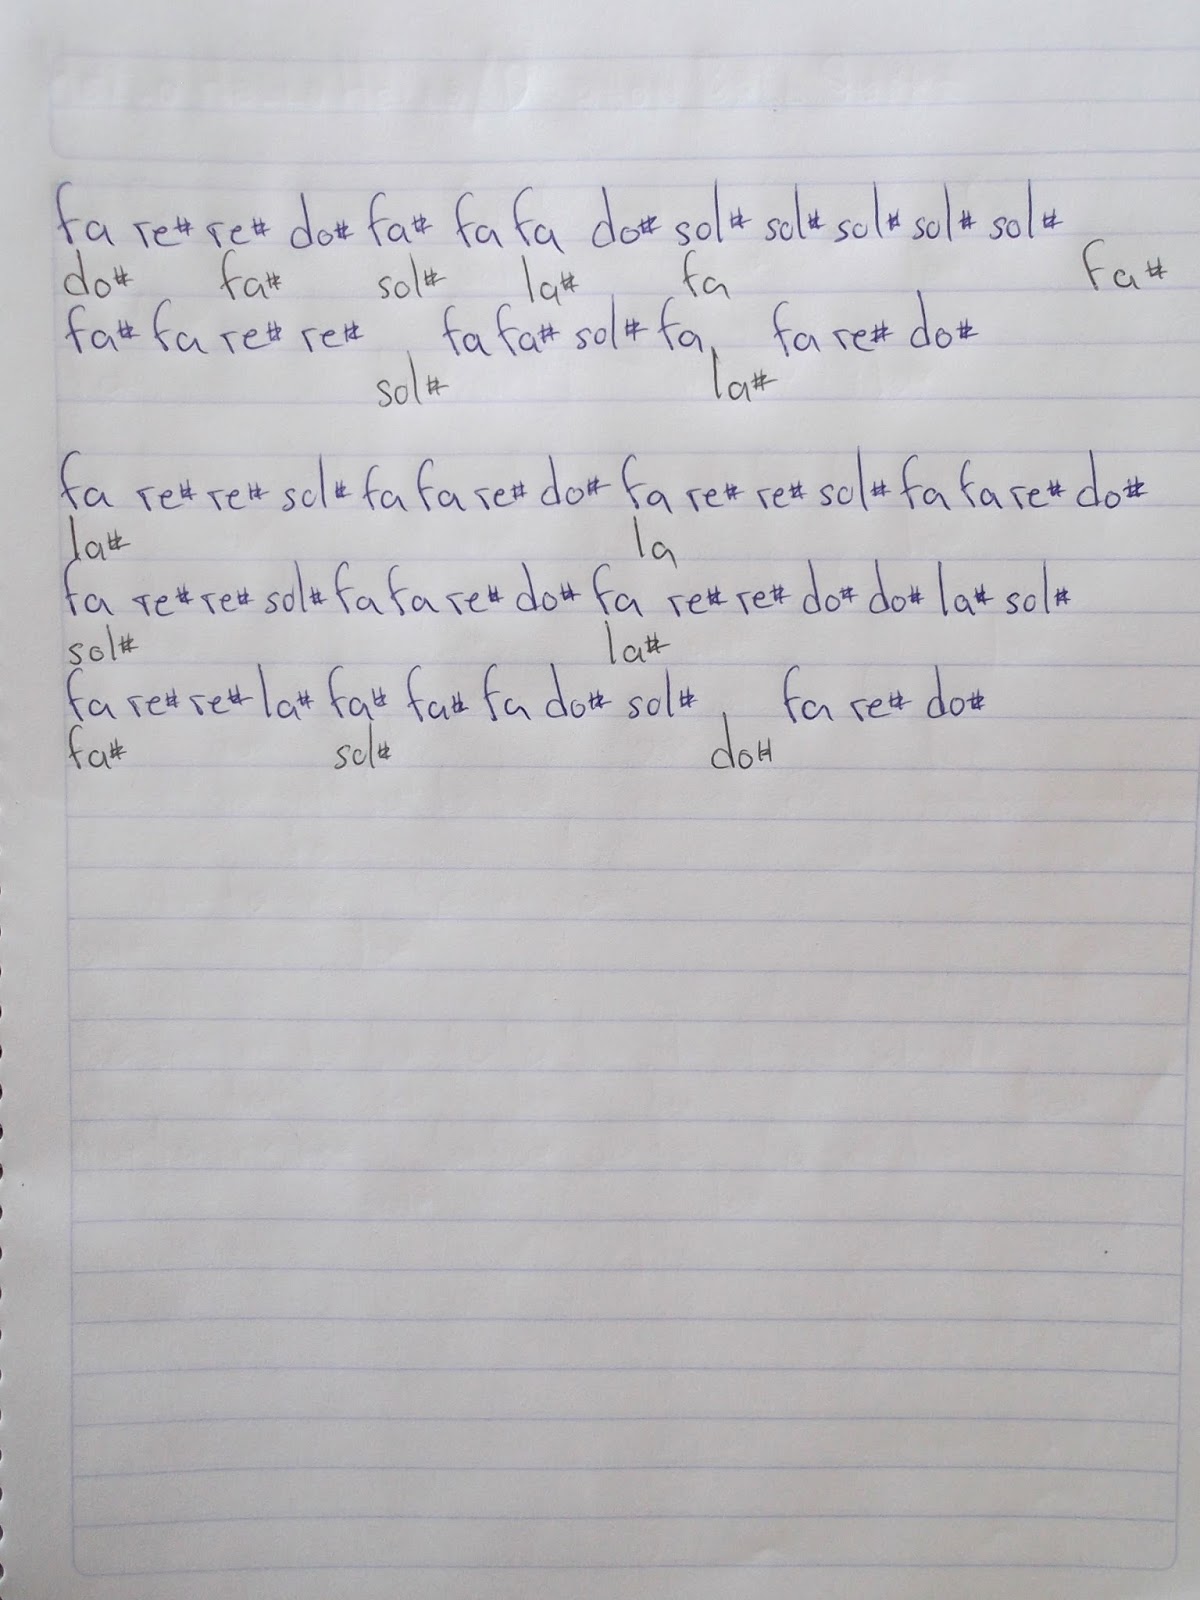 fa re# re# do# fa# fa fa do# sol# sol# sol# sol# sol#
do# fa# sol# la# fa fa#
fa# fa re# re# fa fa# sol# fa fa re# do#
sol# la#
fa re# re# sol# fa fa re# do# fa re# re# sol# fa fa re# do#
la# la
fa re# re# sol# fa fa re# do# fa re# re# do# do# la# sol#
sol# la#
fa re# re# la# fa# fa# fa do# sol# fa re# do#
fa# sol# do#